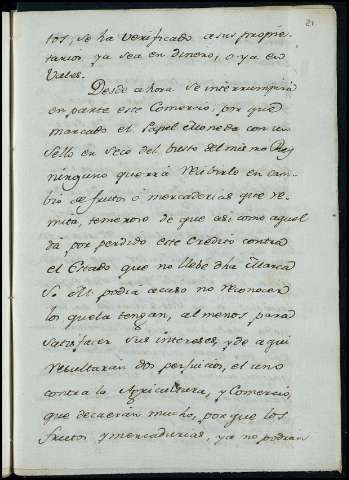 21
tos, se ha verificado a sus propie-
tarios, ya sea en dinero, o ya en
Vales.
Desde ahora se interrumpirá
en parte este Comercio, por que
marcado el Papel Moneda con un
Sello en seco del busto del mismo Rey
ninguno querrá recibirlo en cam-
bio de frutos ó mercaderias que re-
mita, temeroso de que asi como aquel
dá por perdido este Credito contra
el Estado que no llebe dha Marca
S. M. podiá acaso no reconocer
los que la tengan, al menos para
satisfacer sus intereses, y de aqui
resultarán dos perjuicios, el uno
contra la Agricultura, y Comercio,
que decaerán mucho, por que los
frutos y mercadurias, ya no podran